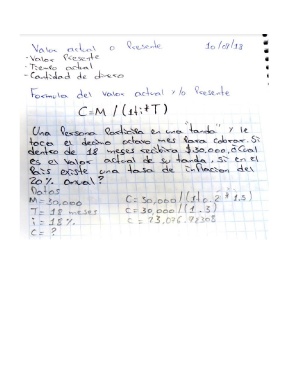 Valor actual o Presente 10/09/18
- Valor Presente
- Tiempo actual
- Cantidad de dinero
Formula del valor actual y/o Presente
C=M / (1+i*T)
Una Persona Participa en una "tanda" y le
toca el decimo octavo mes Para cobrar. Si
dentro de 18 meses recibira $30,000, ¿Cual
es el valor actual de su tanda, si en el
Pais existe una tasa de inflacion del
20% anual?
Datos
M = 30,000 C = 30,000 / (1+0.2 * 1.5)
T = 18 meses C = 30,000 / (1.3)
i = 18% C =
C = ?